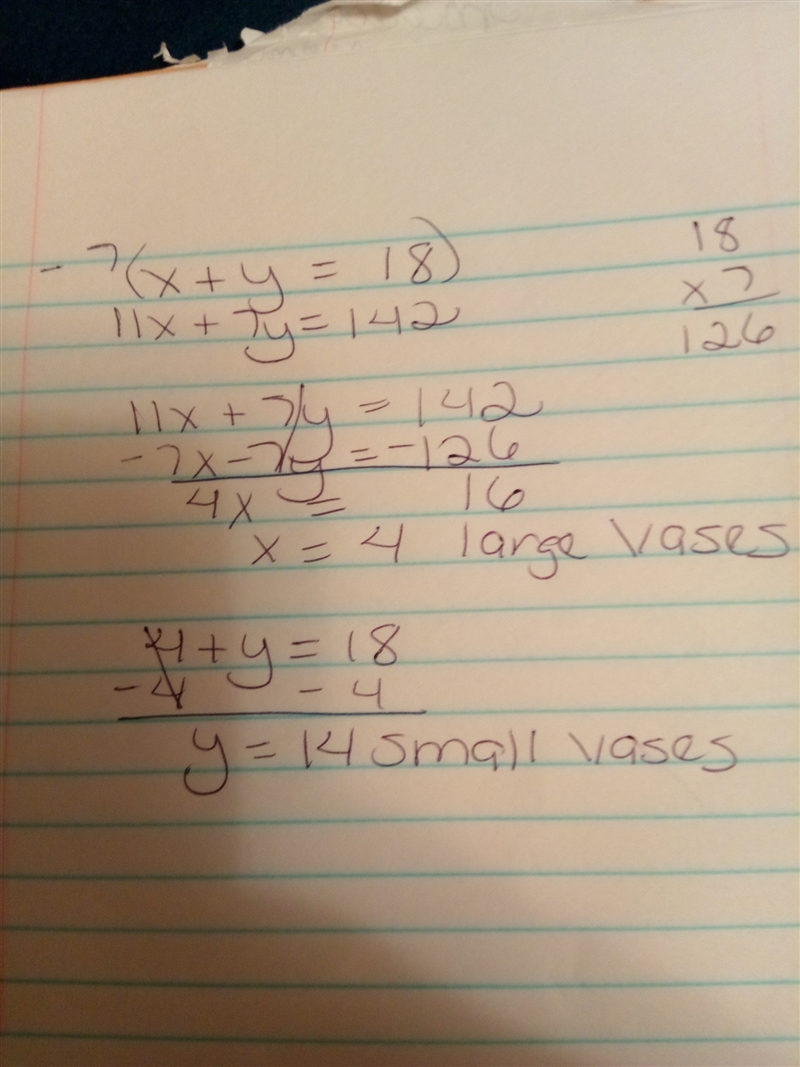 -7(x+y = 18)
11x+7y=142
18
x7
126
11x+7y=142
-7x-7y=-126
4x = 16
x = 4 large vases
4+y=18
-4 -4
y=14 small vases